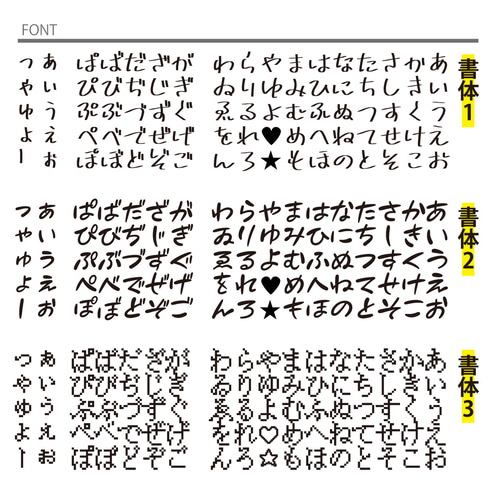 FONT
書体1
あいうえお
かきくけこ
さしすせそ
たちつてと
なにぬねの
はひふへほ
まみむめも
やゆよ♥★
らりるれろ
わゐゑをん
がぎぐげご
ざじずぜぞ
だぢづでど
ばびぶべぼ
ぱぴぷぺぽ
ぁぃぅぇぉ
っゃゅょー
書体2
あいうえお
かきくけこ
さしすせそ
たちつてと
なにぬねの
はひふへほ
まみむめも
やゆよ♥★
らりるれろ
わゐゑをん
がぎぐげご
ざじずぜぞ
だぢづでど
ばびぶべぼ
ぱぴぷぺぽ
ぁぃぅぇぉ
っゃゅょー
書体3
あいうえお
かきくけこ
さしすせそ
たちつてと
なにぬねの
はひふへほ
まみむめも
やゆよ♡☆
らりるれろ
わゐゑをん
がぎぐげご
ざじずぜぞ
だぢづでど
ばびぶべぼ
ぱぴぷぺぽ
ぁぃぅぇぉ
っゃゅょー